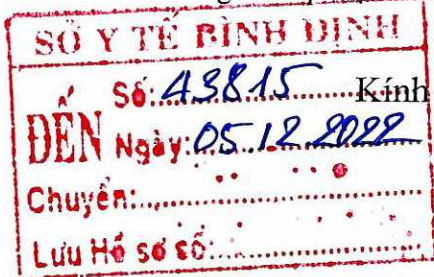 SỞ Y TẾ BÌNH ĐỊNH
Số: 43815 Kính
ĐẾN Ngày: 05.12.2022
Chuyển:
Lưu Hồ sơ số: